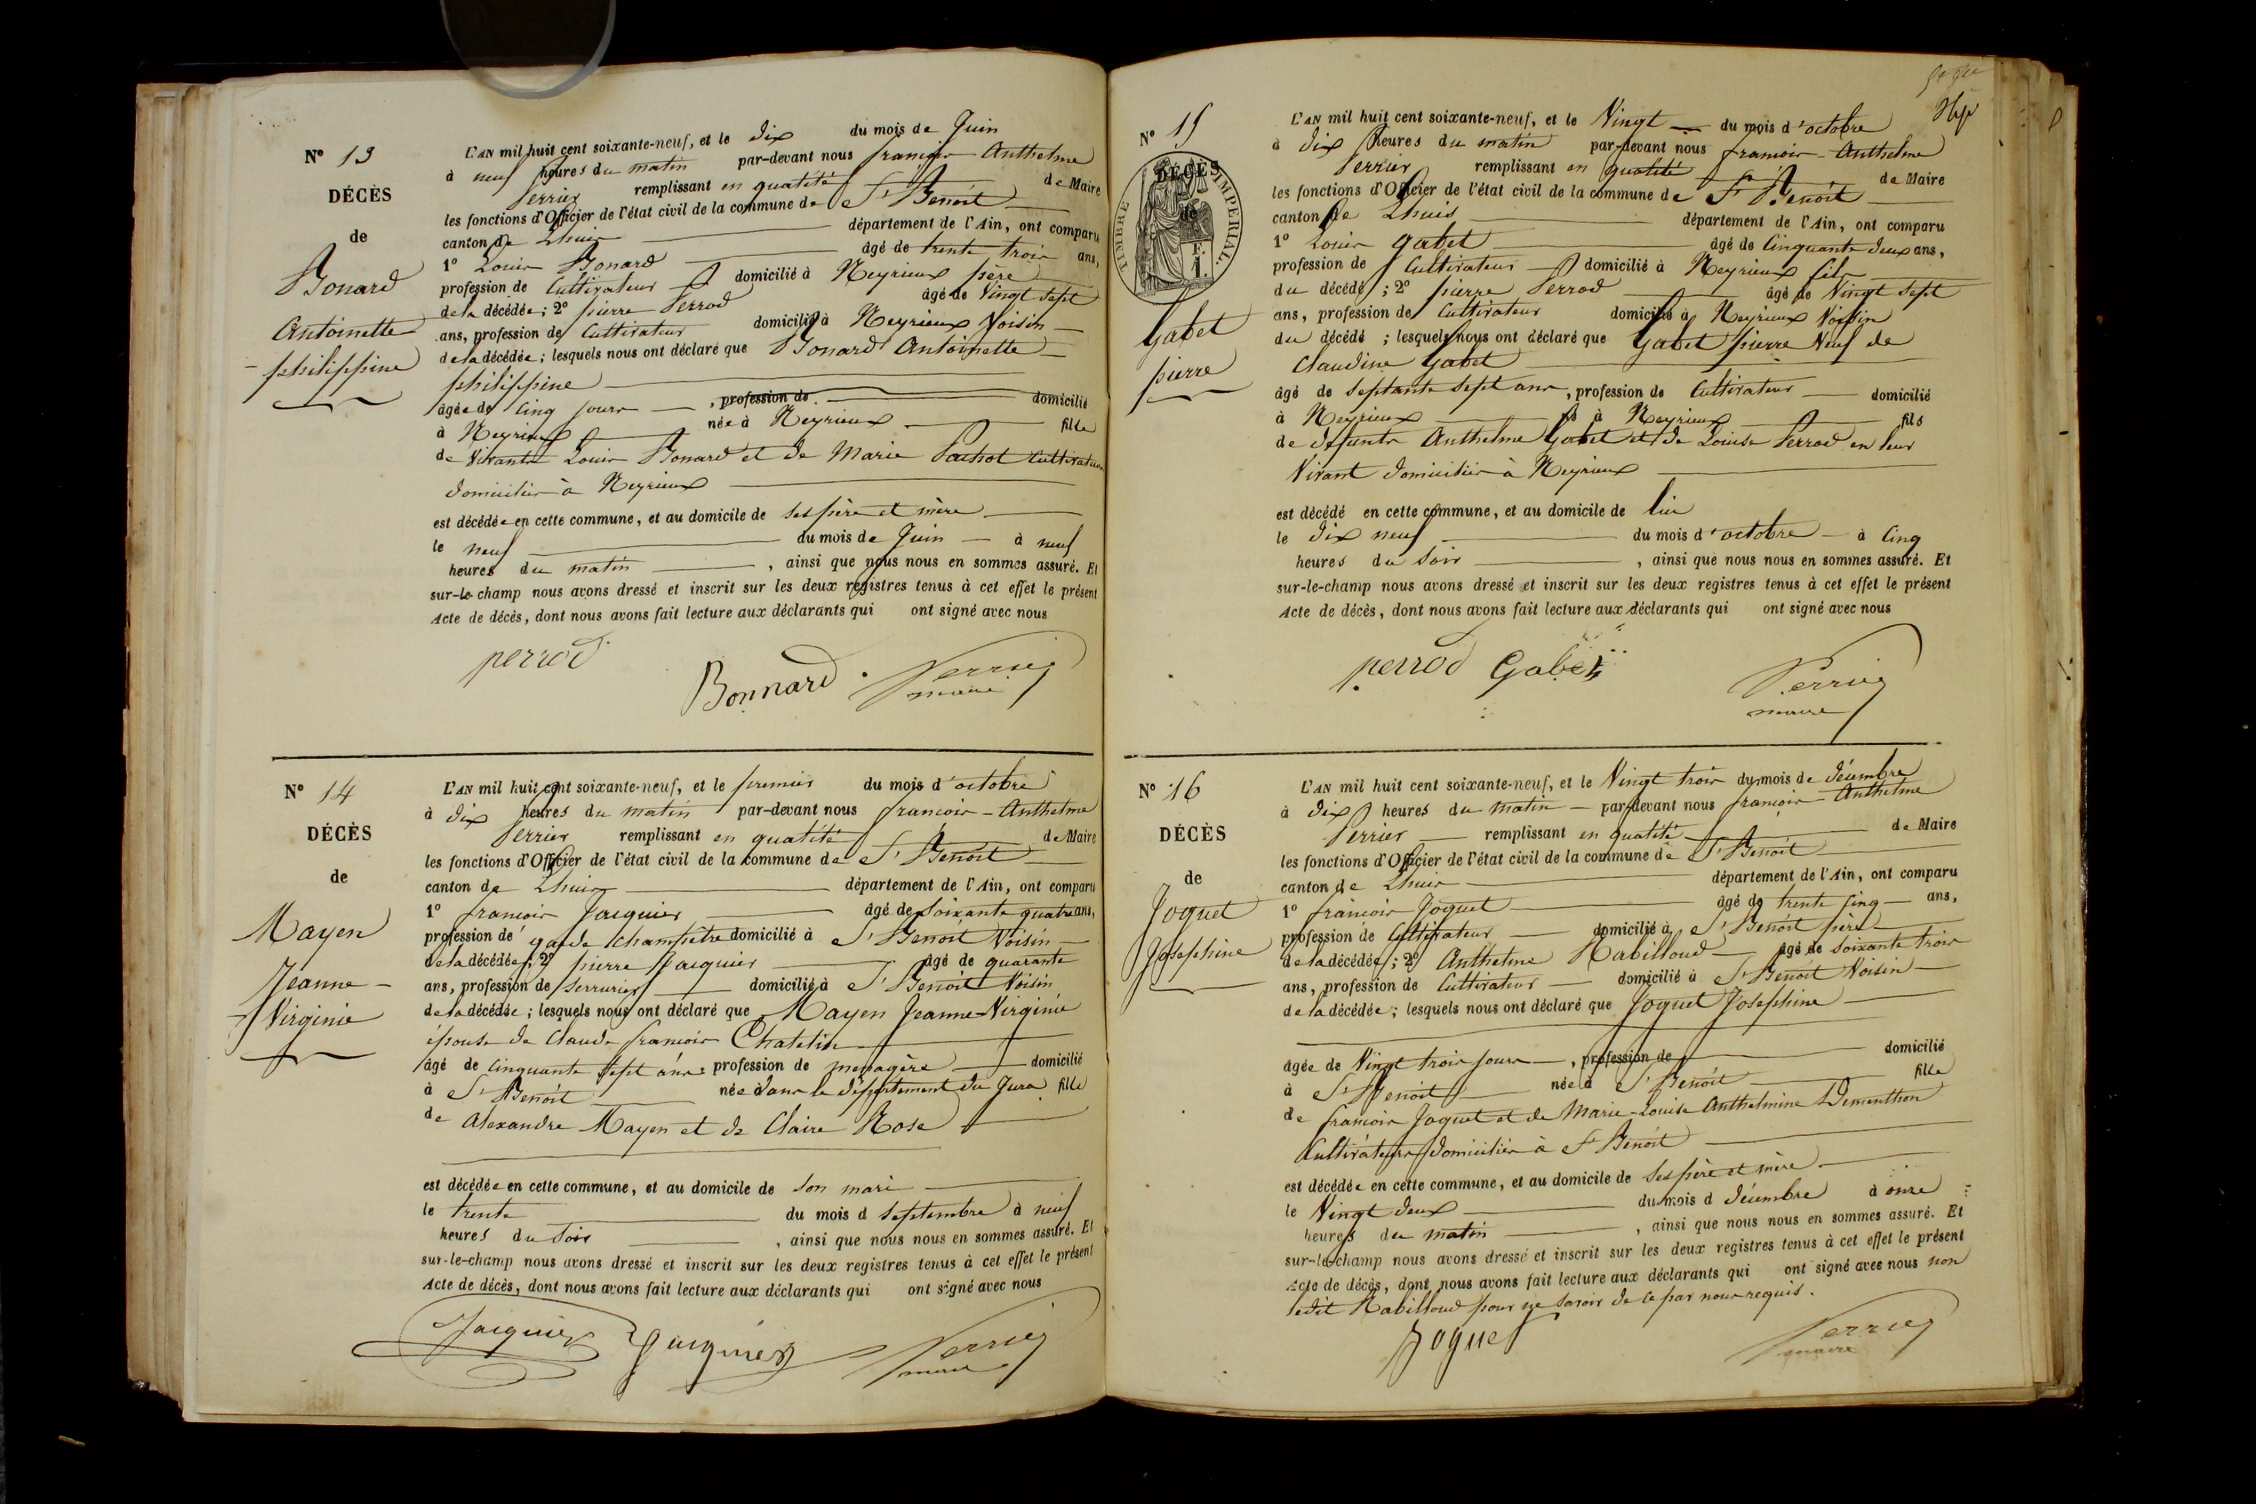 N° 13
DÉCÈS
de
Bonard
Antoinette
philippine
L'AN mil huit cent soixante-neuf, et le dix du mois de Juin
à neuf heures du matin par-devant nous françois Anthelme
Perrier remplissant en qualité de Maire
les fonctions d'Officier de l'état civil de la commune de St Benoît
canton de Lhuis département de l'Ain, ont comparu
1° Louis Bonard âgé de trente trois ans,
profession de Cultivateur domicilié à Neyrieux père
de la décédée ; 2° pierre Perrod âgé de Vingt sept
ans, profession de Cultivateur domicilié à Neyrieux Voisin
de la décédée ; lesquels nous ont déclaré que Bonard Antoinette
philippine
âgée de cinq jours , profession de domicilié
à Neyrieux née à Neyrieux fille
de Vivants Louis Bonard et de Marie Pachot Cultivateurs
domiciliés à Neyrieux
est décédée en cette commune, et au domicile de ses père et mère
le neuf du mois de Juin à neuf
heures du matin , ainsi que nous nous en sommes assuré. Et
sur-le-champ nous avons dressé et inscrit sur les deux registres tenus à cet effet le présent
Acte de décès, dont nous avons fait lecture aux déclarants qui ont signé avec nous
perrod Bonnard Perrier
maire
N° 14
DÉCÈS
de
Mayen
Jeanne
Virginie
L'AN mil huit cent soixante-neuf, et le premier du mois d'octobre
à dix heures du matin par-devant nous françois Anthelme
Perrier remplissant en qualité de Maire
les fonctions d'Officier de l'état civil de la commune de St Benoît
canton de Lhuis département de l'Ain, ont comparu
1° françois Jacquier âgé de soixante quatre ans,
profession de garde champêtre domicilié à St Benoît Voisin
de la décédée ; 2° pierre Jacquier âgé de quarante
ans, profession de serrurier domicilié à St Benoît Voisin
de la décédée ; lesquels nous ont déclaré que Mayen Jeanne Virginie
épouse de Claude françois Chatelin
âgé de cinquante sept ans profession de menagère domicilié
à St Benoît née dans le département du Jura fille
de Alexandre Mayen et de Claire Rose
est décédée en cette commune, et au domicile de son mari
le trente du mois d septembre à neuf
heures du soir , ainsi que nous nous en sommes assuré. Et
sur-le-champ nous avons dressé et inscrit sur les deux registres tenus à cet effet le présent
Acte de décès, dont nous avons fait lecture aux déclarants qui ont signé avec nous
Jacquier Jacquier Perrier
maire
N° 15
TIMBRE IMPERIAL
F.
1.
DÉCÈS
de
Gabet
pierre
L'AN mil huit cent soixante-neuf, et le Vingt du mois d'octobre
à dix heures du matin par-devant nous françois Anthelme
Perrier remplissant en qualité de Maire
les fonctions d'Officier de l'état civil de la commune de St Benoît
canton de Lhuis département de l'Ain, ont comparu
1° Louis Gabet âgé de Cinquante deux ans,
profession de Cultivateur domicilié à Neyrieux fils
du décédé ; 2° pierre Perrod âgé de Vingt sept
ans, profession de Cultivateur domicilié à Neyrieux Voisin
du décédé ; lesquels nous ont déclaré que Gabet pierre Veuf de
Claudine Gabet
âgé de septante sept ans , profession de Cultivateur domicilié
à Neyrieux né à Neyrieux fils
de defunts Anthelme Gabet et de Louise Perrod en leur
Vivant domiciliés à Neyrieux
est décédé en cette commune, et au domicile de lui
le Dix neuf du mois d'octobre à Cinq
heures du soir , ainsi que nous nous en sommes assuré. Et
sur-le-champ nous avons dressé et inscrit sur les deux registres tenus à cet effet le présent
Acte de décès, dont nous avons fait lecture aux déclarants qui ont signé avec nous
perrod Gabet Perrier
maire
N° 16
DÉCÈS
de
Joguet
Josephine
L'AN mil huit cent soixante-neuf, et le Vingt trois du mois de décembre
à dix heures du matin par-devant nous françois Anthelme
Perrier remplissant en qualité de Maire
les fonctions d'Officier de l'état civil de la commune de St Benoît
canton de Lhuis département de l'Ain, ont comparu
1° françois Joguet âgé de trente cinq ans,
profession de Cultivateur domicilié à St Benoît père
de la décédée ; 2° Anthelme Rabilloud âgé de soixante trois
ans, profession de Cultivateur domicilié à St Benoît Voisin
de la décédée ; lesquels nous ont déclaré que Joguet Josephine
âgée de Vingt trois jours , profession de domicilié
à St Benoît née à St Benoît fille
de françois Joguet et de Marie-Louise Anthelmine Dementhon
Cultivateurs domiciliés à St Benoît
est décédée en cette commune, et au domicile de ses père et mère
le Vingt deux du mois d décembre à onze
heures du matin , ainsi que nous nous en sommes assuré. Et
sur-le-champ nous avons dressé et inscrit sur les deux registres tenus à cet effet le présent
Acte de décès, dont nous avons fait lecture aux déclarants qui ont signé avec nous non
ledit Rabilloud pour ne savoir de ce par nous requis.
Joguet Perrier
maire